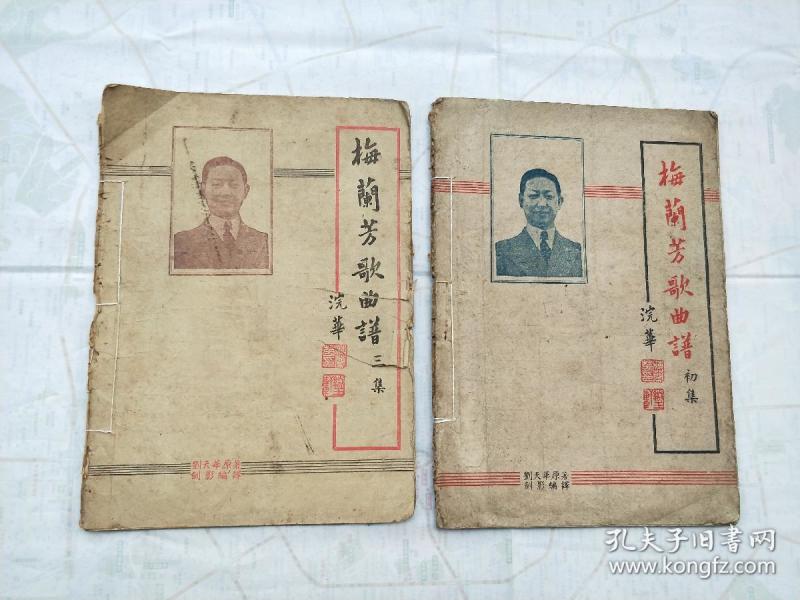 梅蘭芳歌曲譜
三集
浣華
劉天華原著
劍影編譯
梅蘭芳歌曲譜
初集
浣華
劉天華原著
劍影編譯
孔夫子旧书网
www.kongfz.com